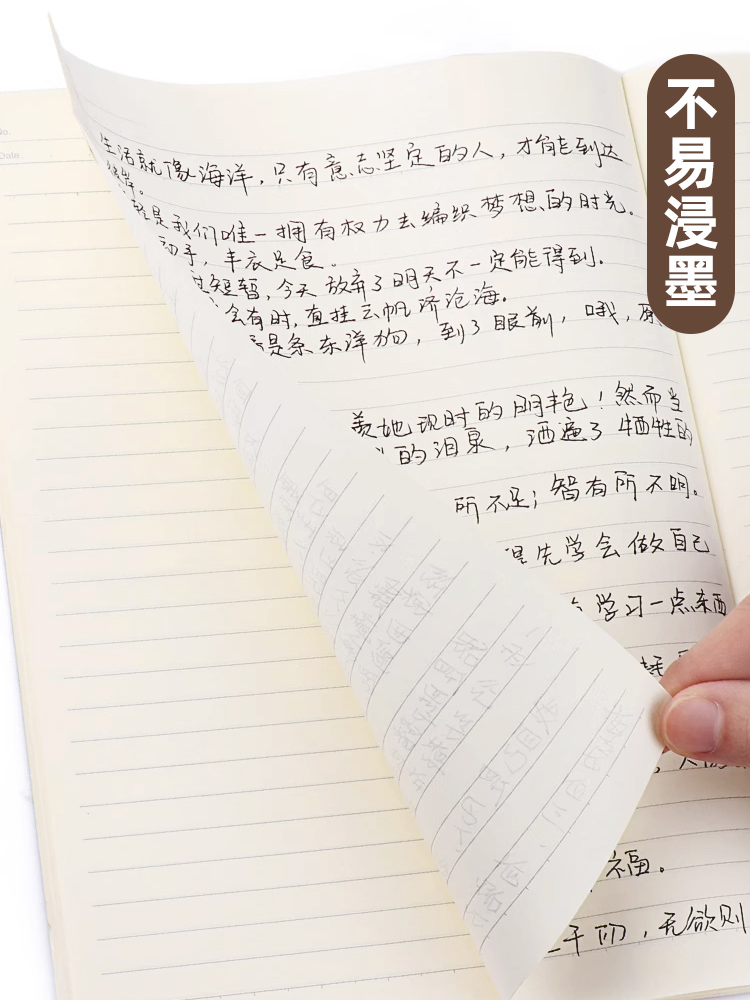 不易浸墨
No.
Date.
生活就像海洋，只有意志坚定的人，才能到达
彼岸。
轻是我们唯一拥有权力去编织梦想的时光。
动手，丰衣足食。
过短暂，今天放弃了明天不一定能得到.
会有时，直挂云帆济沧海。
是条东洋狗，到了眼前，哦，原
羡她现时的明艳！然而当
的泪泉，洒遍了牺牲的
所不足；智有所不明。
得先学会做自己
学习一点东西
福。
千仞，无欲则